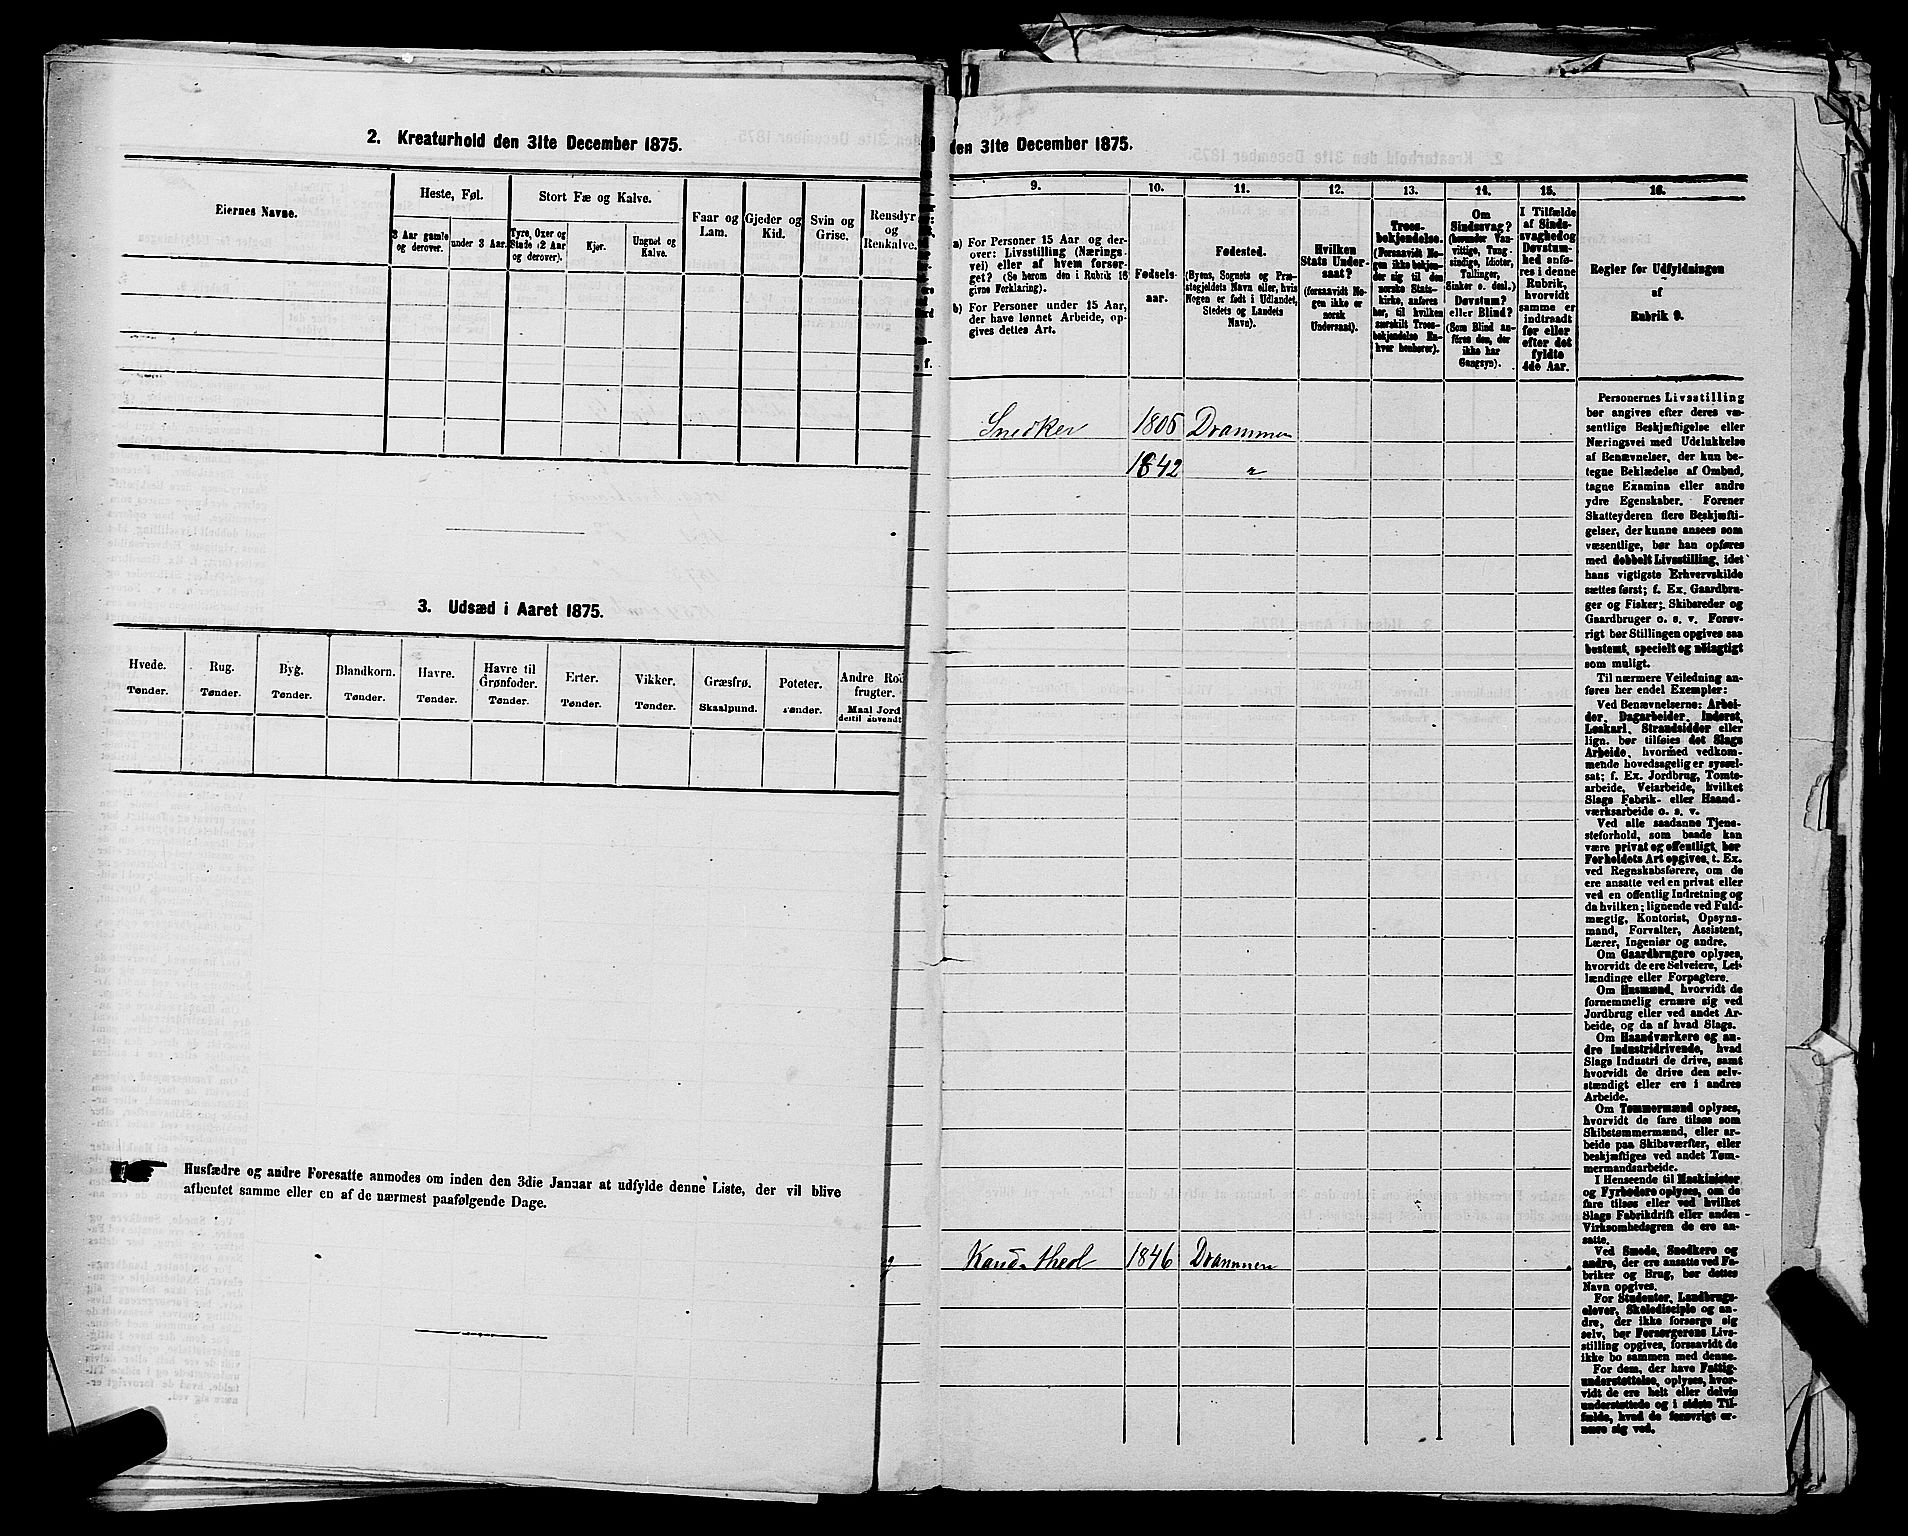 2. Kreaturhold den 31te December 1875.
Eiernes Navne.
Heste, Føl.
3 Aar gamle og derover.
under 3 Aar.
Stort Fæ og Kalve.
Tyre, Oxer og Stude (2 Aar og derover).
Kjør.
Ungnøt og Kalve.
Faar og Lam.
Gjeder og Kid.
Svin og Grise.
Rensdyr og Renkalve.
3. Udsæd i Aaret 1875.
Hvede. Rug. Byg. Blandkorn. Havre. Havre til Grønfoder. Erter. Vikker. Græsfrø. Poteter. Andre Rodfrugter.
Tønder. Tønder. Tønder. Tønder. Tønder. Tønder. Tønder. Tønder. Skaalpund. Tønder. Maal Jord dertil anvendt
Husfædre og andre Foresatte anmodes om inden den 3die Januar at udfylde denne Liste, der vil blive
afhentet samme eller en af de nærmest paafølgende Dage.
den 31te December 1875.
9. 10. 11. 12. 13. 14. 15. 16.
a) For Personer 15 Aar og derover: Livsstilling (Næringsvei) eller af hvem forsørget? (Se herom den i Rubrik 16 givne Forklaring).
b) For Personer under 15 Aar, der have lønnet Arbeide, opgives dettes Art.
Fødselsaar.
Fødested.
(Byens, Sognets og Præstegjeldets Navn eller, hvis Nogen er født i Udlandet, Stedets og Landets Navn).
Hvilken Stats Undersaat?
(forsaavidt Nogen ikke er norsk Undersaat).
Troesbekjendelse.
(Forsaavidt Nogen ikke bekjender sig til den norske Statskirke, anføres her, til hvilken særskilt Troesbekjendelse Enhver henhører).
Om Sindssvag?
(herunder Vanvittige, Tungsindige, Idioter, Tullinger, Sinker o. desl.)
Døvstum? eller Blind?
(Som Blind anføres den, der ikke har Gangsyn).
I Tilfælde af Sindssvaghed og Døvstumhed anføres i denne Rubrik, hvorvidt samme er indtraadt før eller efter det fyldte 4de Aar.
Regler for Udfyldningen
af
Rubrik 9.
Snedker 1806 Drammen
1842 "
Kand. theol 1846 Drammen
Personernes Livsstilling
bør angives efter deres væ-
sentlige Beskjæftigelse eller
Næringsvei med Udelukkelse
af Benævnelser, der kun be-
tegne Beklædelse af Ombud,
tagne Examina eller andre
ydre Egenskaber. Forener
Skatteyderen flere Beskjæfti-
gelser, der kunne ansees som
væsentlige, bør han opføres
med dobbelt Livsstilling, idet
hans vigtigste Erhvervskilde
sættes først; f. Ex. Gaardbru-
ger og Fisker; Skibsreder og
Gaardbruger o. s. v. Forøv-
rigt bør Stillingen opgives saa
bestemt, specielt og nøiagtigt
som muligt.
Til nærmere Veiledning an-
føres her endel Exempler:
Ved Benævnelserne: Arbei-
der, Dagarbeider, Inderst,
Løskarl, Strandsidder eller
lign. bør tilføies det Slags
Arbeide, hvormed vedkom-
mende hovedsagelig er syssel-
sat; f. Ex. Jordbrug, Tomte-
arbeide, Veiarbeide, hvilket
Slags Fabrik- eller Haand-
værksarbeide o. s. v.
Ved alle saadanne Tjene-
steforhold, som baade kan
være privat og offentligt, bør
Forholdets Art opgives, t. Ex.
ved Regnskabsførere, om de
ere ansatte ved en privat eller
ved en offentlig Indretning og
da hvilken; lignende ved Fuld-
mægtig, Kontorist, Opsyns-
mand, Forvalter, Assistent,
Lærer, Ingeniør og andre.
Om Gaardbrugere oplyses,
hvorvidt de ere Selveiere, Lei-
lændinge eller Forpagtere.
Om Husmænd, hvorvidt de
fornemmelig ernære sig ved
Jordbrug eller ved andet Ar-
beide, og da af hvad Slags.
Om Haandværkere og an-
dre Industridrivende, hvad
Slags Industri de drive, samt
hvorvidt de drive den selv-
stændigt eller ere i andres
Arbeide.
Om Tømmermænd oplyses,
hvorvidt de fare tilsøs som
Skibstømmermænd, eller ar-
beide paa Skibsværfter, eller
beskjæftiges ved andet Tøm-
mermandsarbeide.
I Henseende til Maskinister
og Fyrbødere oplyses, om de
fare tilsøs eller ved hvilket
Slags Fabrikdrift eller anden
Virksomhedsgren de ere an-
satte.
Ved Smede, Snedkere og
andre, der ere ansatte ved Fa-
briker og Brug, bør dettes
Navn opgives.
For Studenter, Landbrugs-
elever, Skoledisciple og an-
dre, der ikke forsørge sig
selv, bør Forsørgerens Livs-
stilling opgives, forsaavidt de
ikke bo sammen med denne.
For dem, der have Fattig-
understøttelse, oplyses, hvor-
vidt de ere helt eller delvis
understøttede og i sidste Til-
fælde, hvad de forøvrigt er-
nære sig ved.